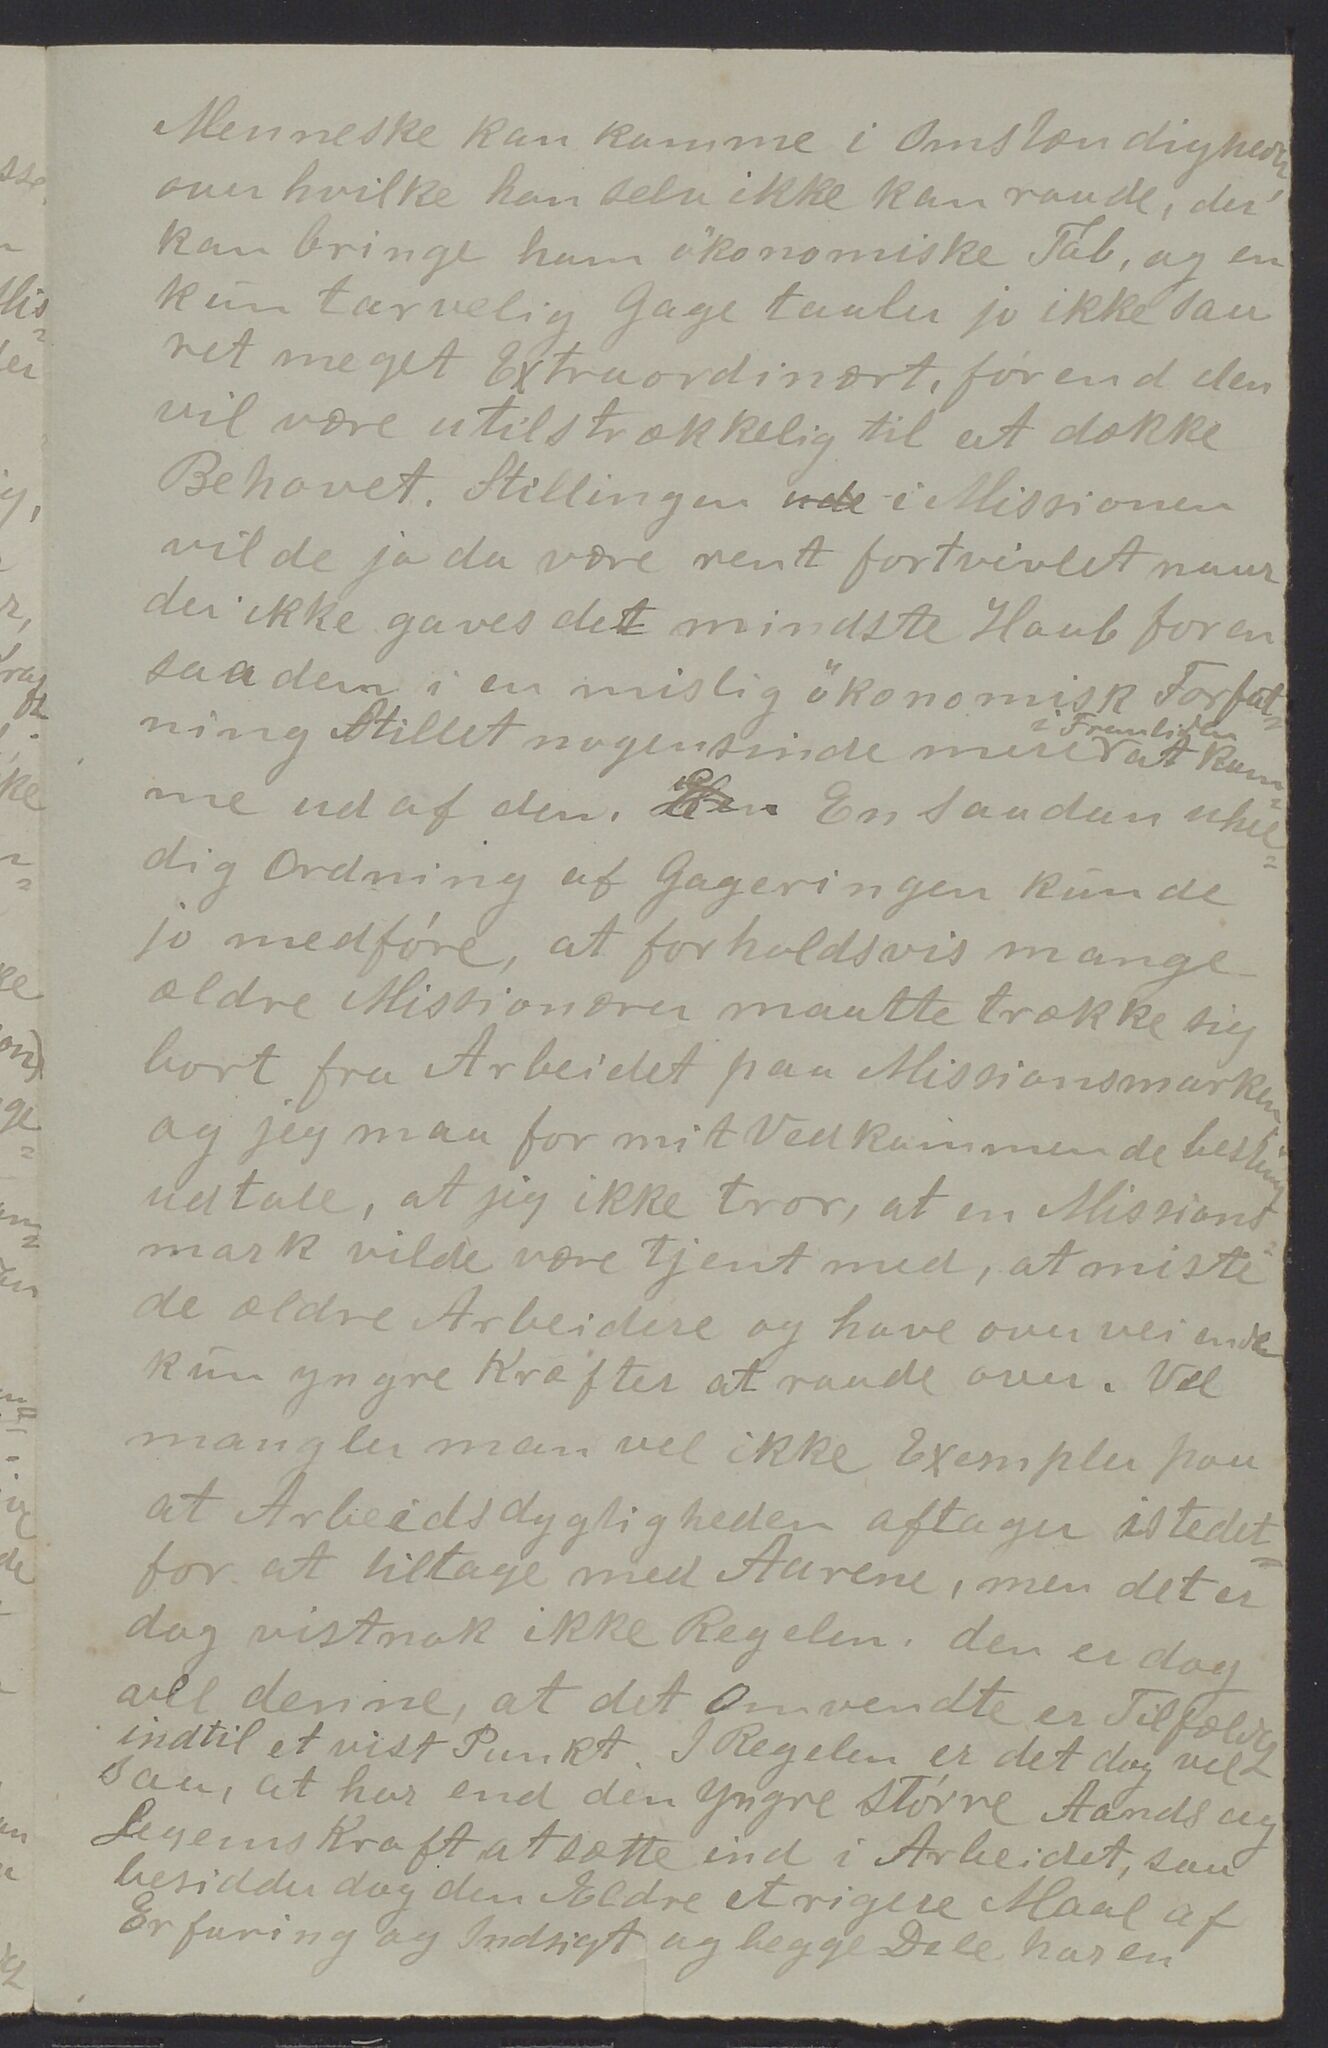 Menneske kan komme i Omstændigheder,
over hvilke han selv ikke kan raade, der
kan bringe ham ökonomiske Tab, og en
kun tarvelig Gage taaler jo ikke saa
ret meget Extraordinært, förend den
vil være utilstrækkelig til at dække
Behovet. Stillingen ude i Missionen
vilde jo da være rent fortvivlet naar
der ikke gaves det mindste Haab for en
saadan i en mislig ökonomisk Forfat=
ning Stillet nogensinde mere i Fremtiden at kom=
me ud af den. En saadan uhel=
dig Ordning af Gageringen kunde
jo medföre, at forholdsvis mange
ældre Missionærer maatte trække sig
bort fra Arbeidet paa Missionsmarken,
og jeg maa for mit Vedkommende bestemt
udtale, at jeg ikke tror, at en Missions=
mark vilde være tjent med, at miste
de ældre Arbeidere og have overveiende
kun yngre Kræfter at raade over. Vel
mangler man vel ikke Exempler paa
at Arbeidsdygtigheden aftager istedet=
for at tiltage med Aarene, men det er
dog vistnok ikke Regelen. den er dog
vel denne, at det Omvendte er Tilfældet
indtil et vist Punkt. I Regelen er det dog vel
saa, at har end den yngre större Aands og
Legems Kraft at sætte ind i Arbeidet, saa
besidder dog den Ældre et rigere Maal af
Erfaring og Indsigt og begge Dele har en